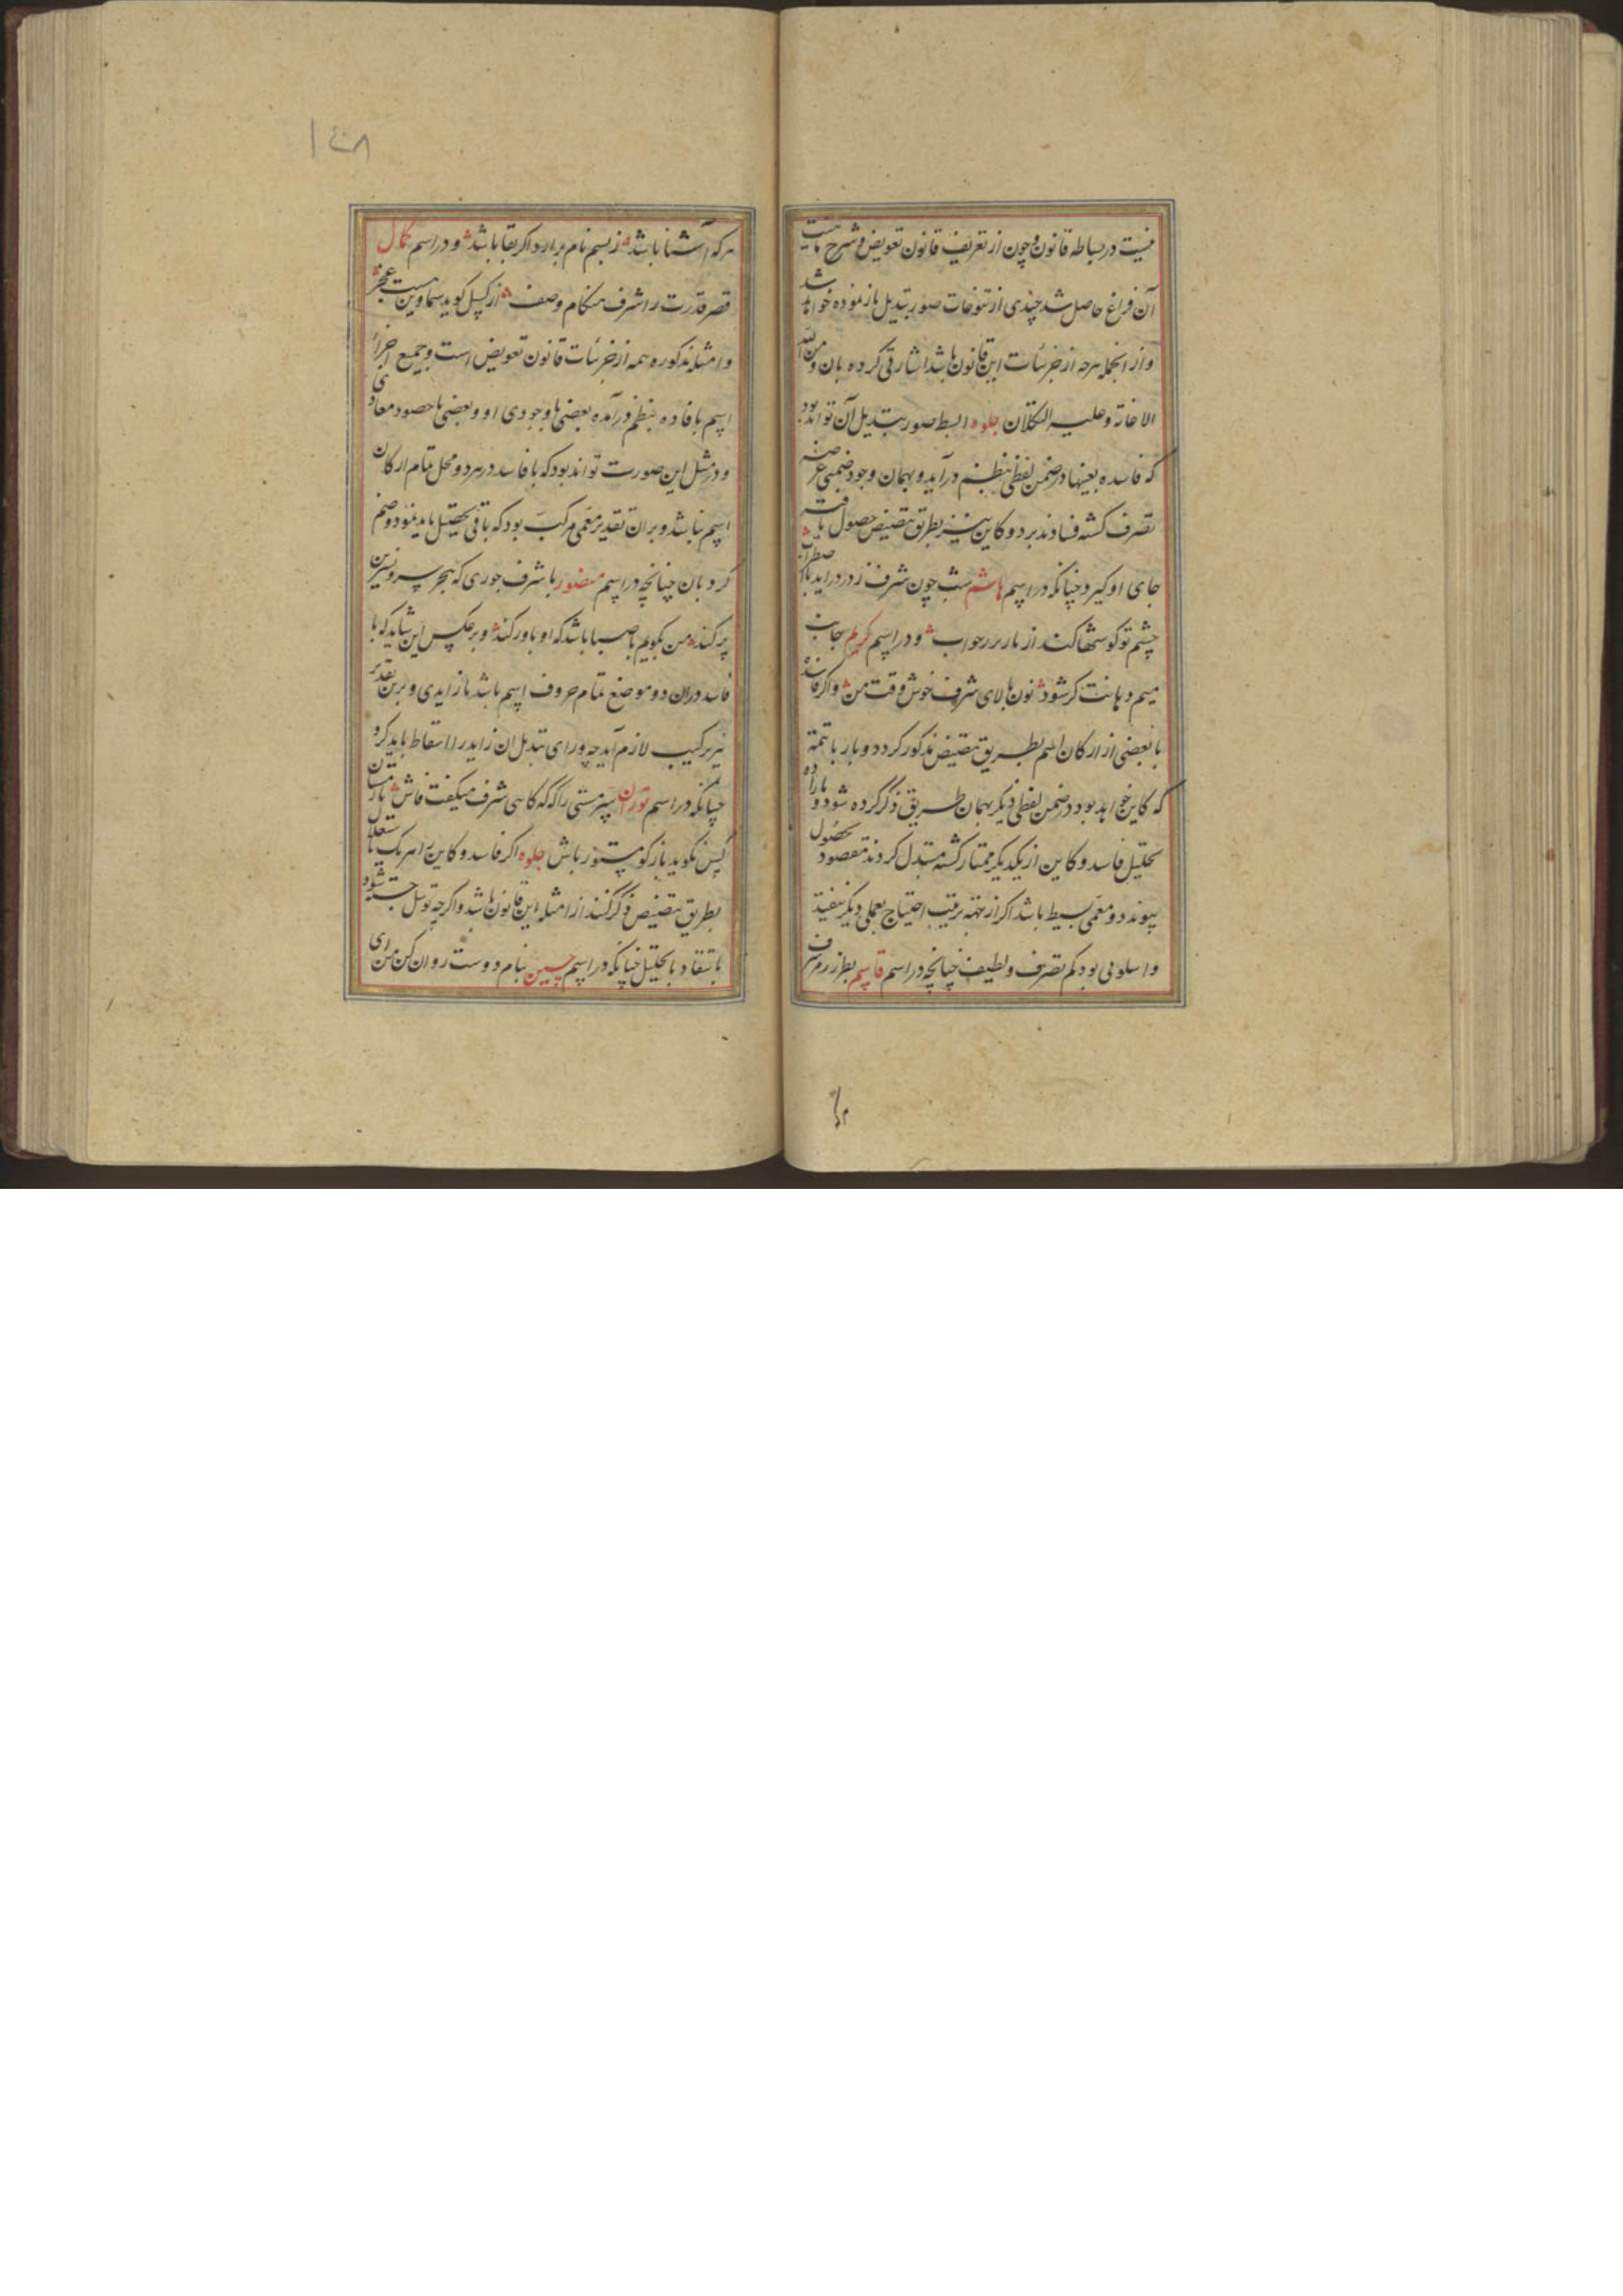 نیست در بساطه قانون و چون از تعریف قانون تعویض و شرح ماهیت
آن فراغ حاصل شد چندی از تنوعات صور تبدیل باز نموده خواهد شد
و از انجمله هرچه از جزئیات این قانون باشد اشارتی کرده بان و من الله
الاعانة و علیه التکلان جلوه ابسط صور تبدیل آن تواند بود
که فاسده بعینها در ضمن لفظی بنظم درآید و بهمان وجود ضمنی عرضه
تصرف گشته فساد پذیرد و کاین نیز بطریق تنصیص حصول یافته
جای او گیرد چنانکه در اسم هاشم شب چون شرف ز در دراید باضطراب
چشم تو گوشها کند از بار بر جواب و در اسم کریم بجانب
میم دهانت گر شود نون بالای شرف خوش وقت من و اگر فاسده
با بعضی از ارکان اسم بطریق تنصیص مذکور گردد و بار با تتمه
که کاین خواهد بود در ضمن لفظی دیگر بهمان طریق ذکر کرده شود و بار اده
تحلیل فاسد و کاین از یکدیگر ممتاز گشته متبدل گردند مقصود بحصول
پیوندد و معمی بسیط باشد اگر از تتمه ترتیب احتیاج بعملی دیگر نیفتد
و اسلوبی بود کم تصرف و لطیف چنانچه در اسم قاسم بطرز رمز شرف
هر که
۱۴۸
هرکه آشنا باشد ز بسم نام برارد اگر بقا باشد و در اسم کمال
قصر قدرت را شرف هنکام وصف از کسل گوید سما وین هست عجز
و امثله مذکوره همه از جزئیات قانون تعویض است و جمیع اجزای
اسم بافاده بنظم درآمده بعضی با وجودی او و بعضی با حصود معادی
و در مثل این صورت تواند بود که با فاسد در هر دو محل تمام ارکان
اسم نباشد و بران تقدیر معمی مرکب بود که باقی تحصیل باید نمود و ضم
کرد بان چنانچه در اسم منصور با شرف جوری که هجر سرو نسرین
پر کند من بگویم با صبا باشد که او باور کند و برعکس این شاید که با
فاسد دران دو موضع تمام حروف اسم باشد با زایدی و برین تقدیر
نیز ترکیب لازم آید چه ورای تبدیل ان زاید را اسقاط باید کرد
چنانکه در اسم توران سر مستی را که که کاهی شرف میگفت فاش باز مستان
پس نگوید باز کو مستور باش جلوه اگر فاسد و کاین هر یک باستقلال
بطریق تنصیص ذکر کنند از امثله این قانون باشد و اگرچه توسل جسته شود
بانتقاد یا تحلیل چنانکه در اسم حسین بنام دوست روان کن ای